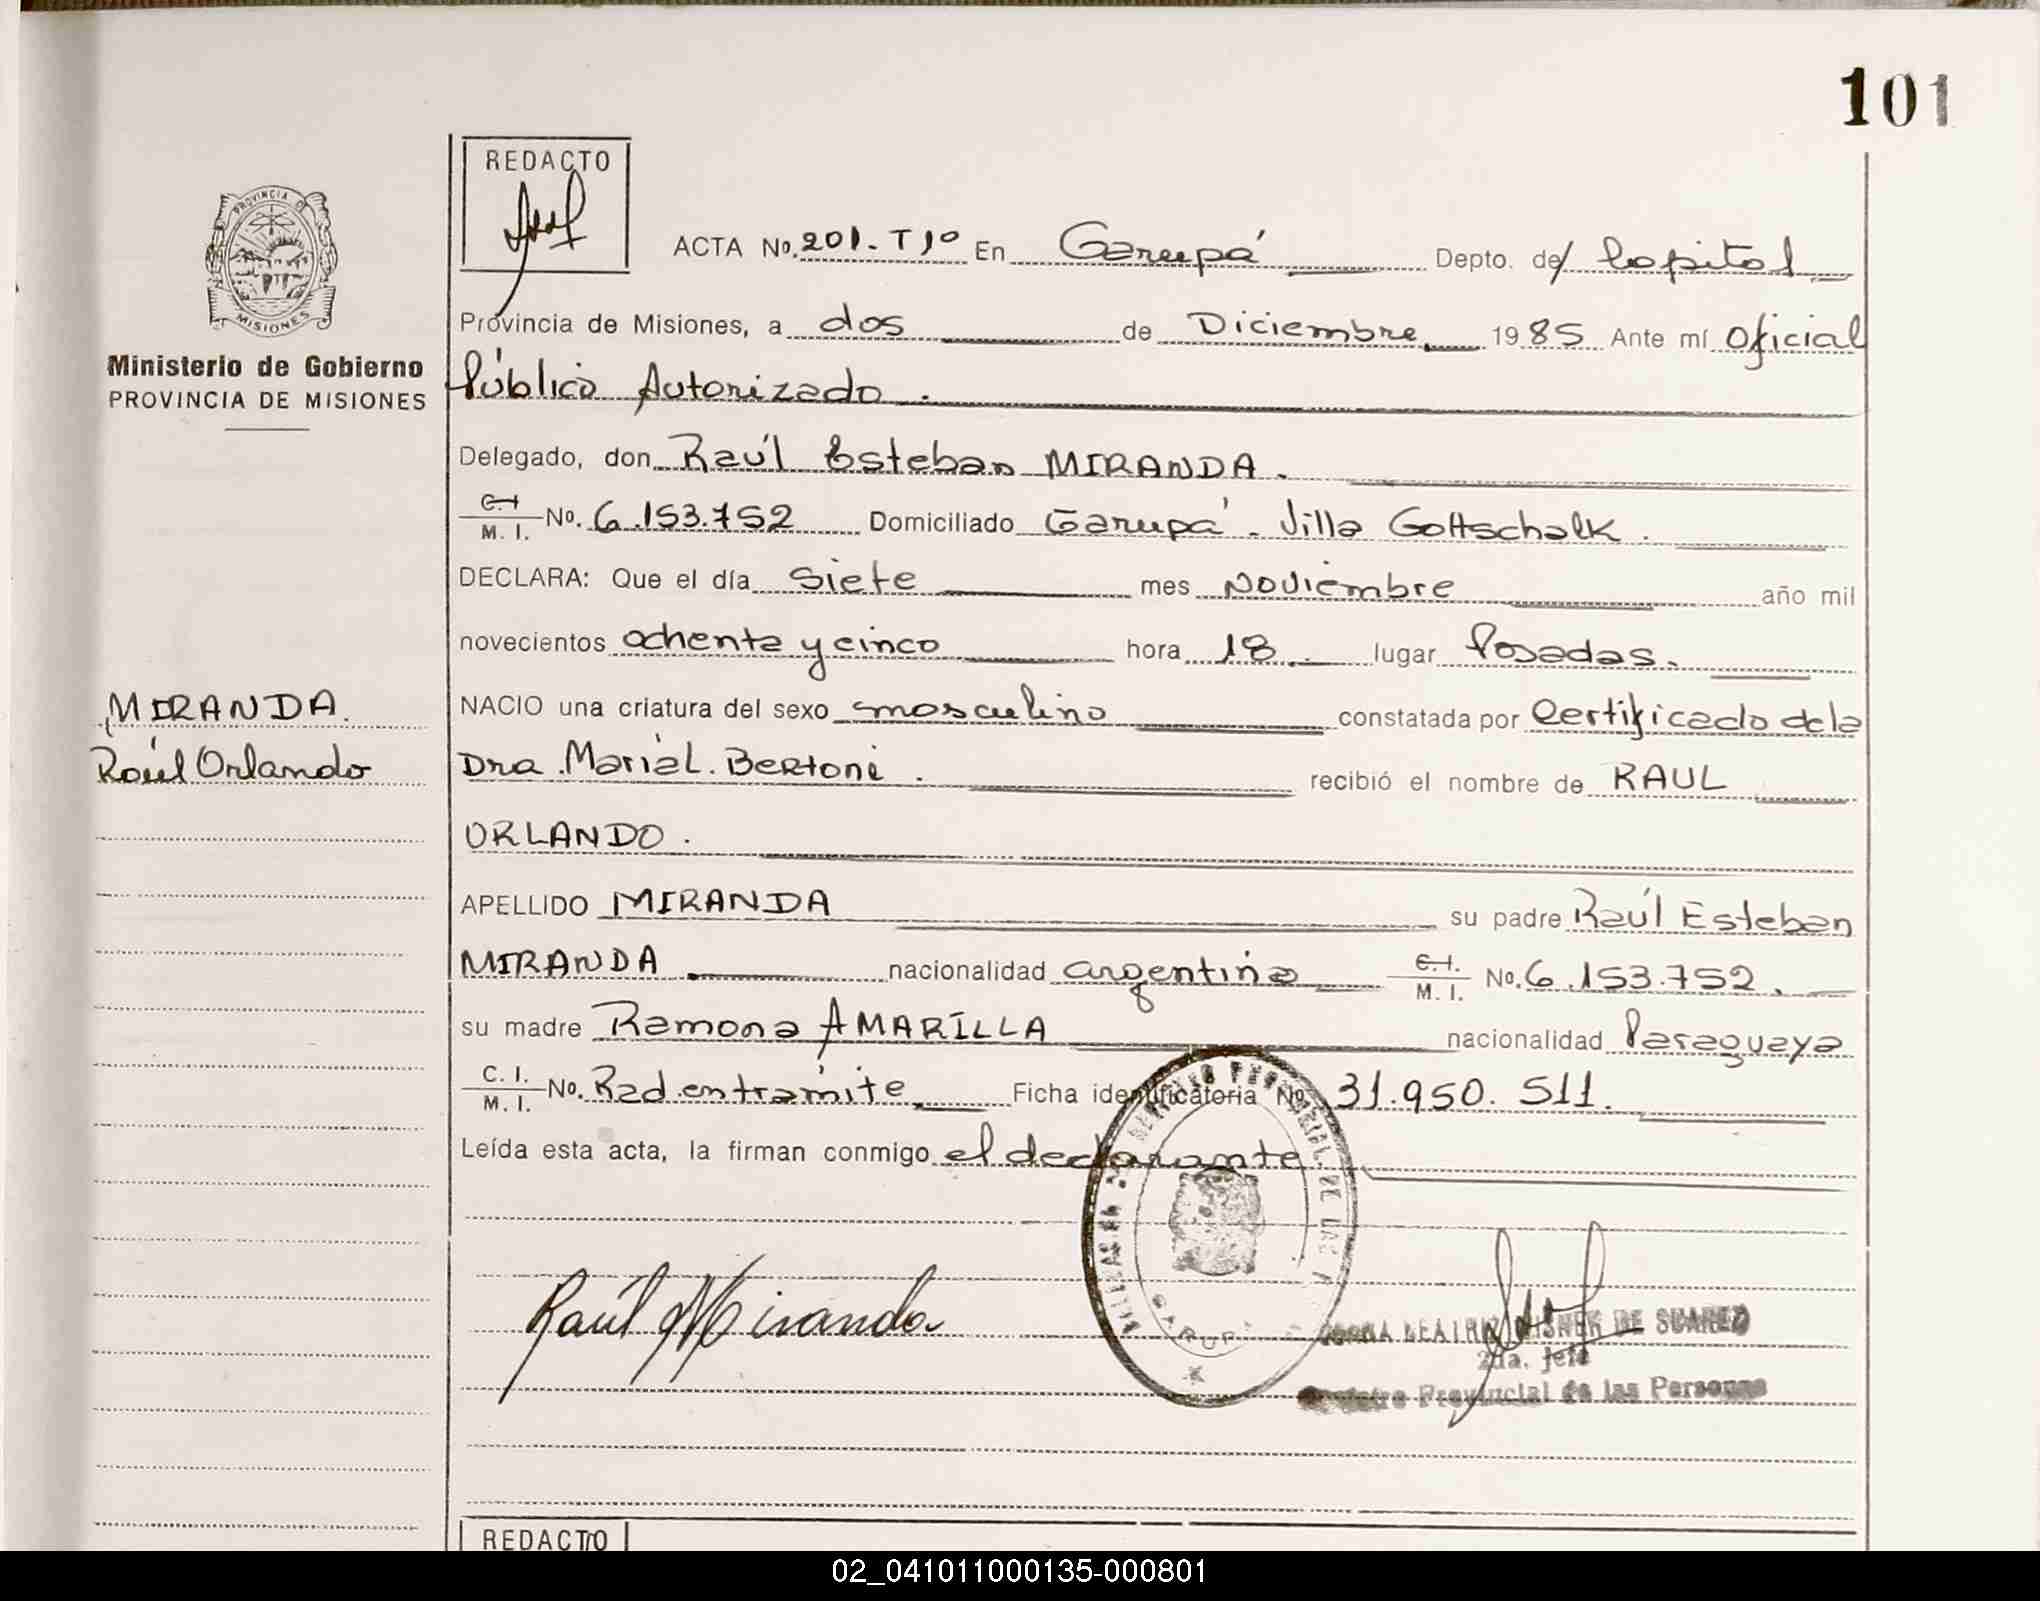 101
REDACTO
ACTA No. 201. T 1º En Garupá Depto. de Capital
PROVINCIA DE
MISIONES
Provincia de Misiones, a dos de Diciembre 1985 Ante mí Oficial
Ministerio de Gobierno
PROVINCIA DE MISIONES
Público Autorizado.
Delegado, don Raúl Esteban MIRANDA.
C.I. M. I. No. 6.153.752 Domiciliado Garupá. Villa Gottschalk.
DECLARA: Que el día siete mes Noviembre año mil
novecientos ochenta y cinco hora 18. lugar Posadas.
MIRANDA
Raúl Orlando
NACIO una criatura del sexo masculino constatada por Certificado de la
Dra. María L. Bertoni. recibió el nombre de RAUL
ORLANDO.
APELLIDO MIRANDA su padre Raúl Esteban
MIRANDA nacionalidad argentina C.I. M. I. No. 6.153.752.
su madre Ramona AMARILLA nacionalidad Paraguaya
C. I. M. I. No. Rad. en trámite. Ficha identificatoria No 31.950.511.
Leída esta acta, la firman conmigo el declarante
Raúl Miranda
GARUPA
DE SUAREZ
2da. Jefe
Registro Provincial de las Personas
REDACTO
02_041011000135-000801